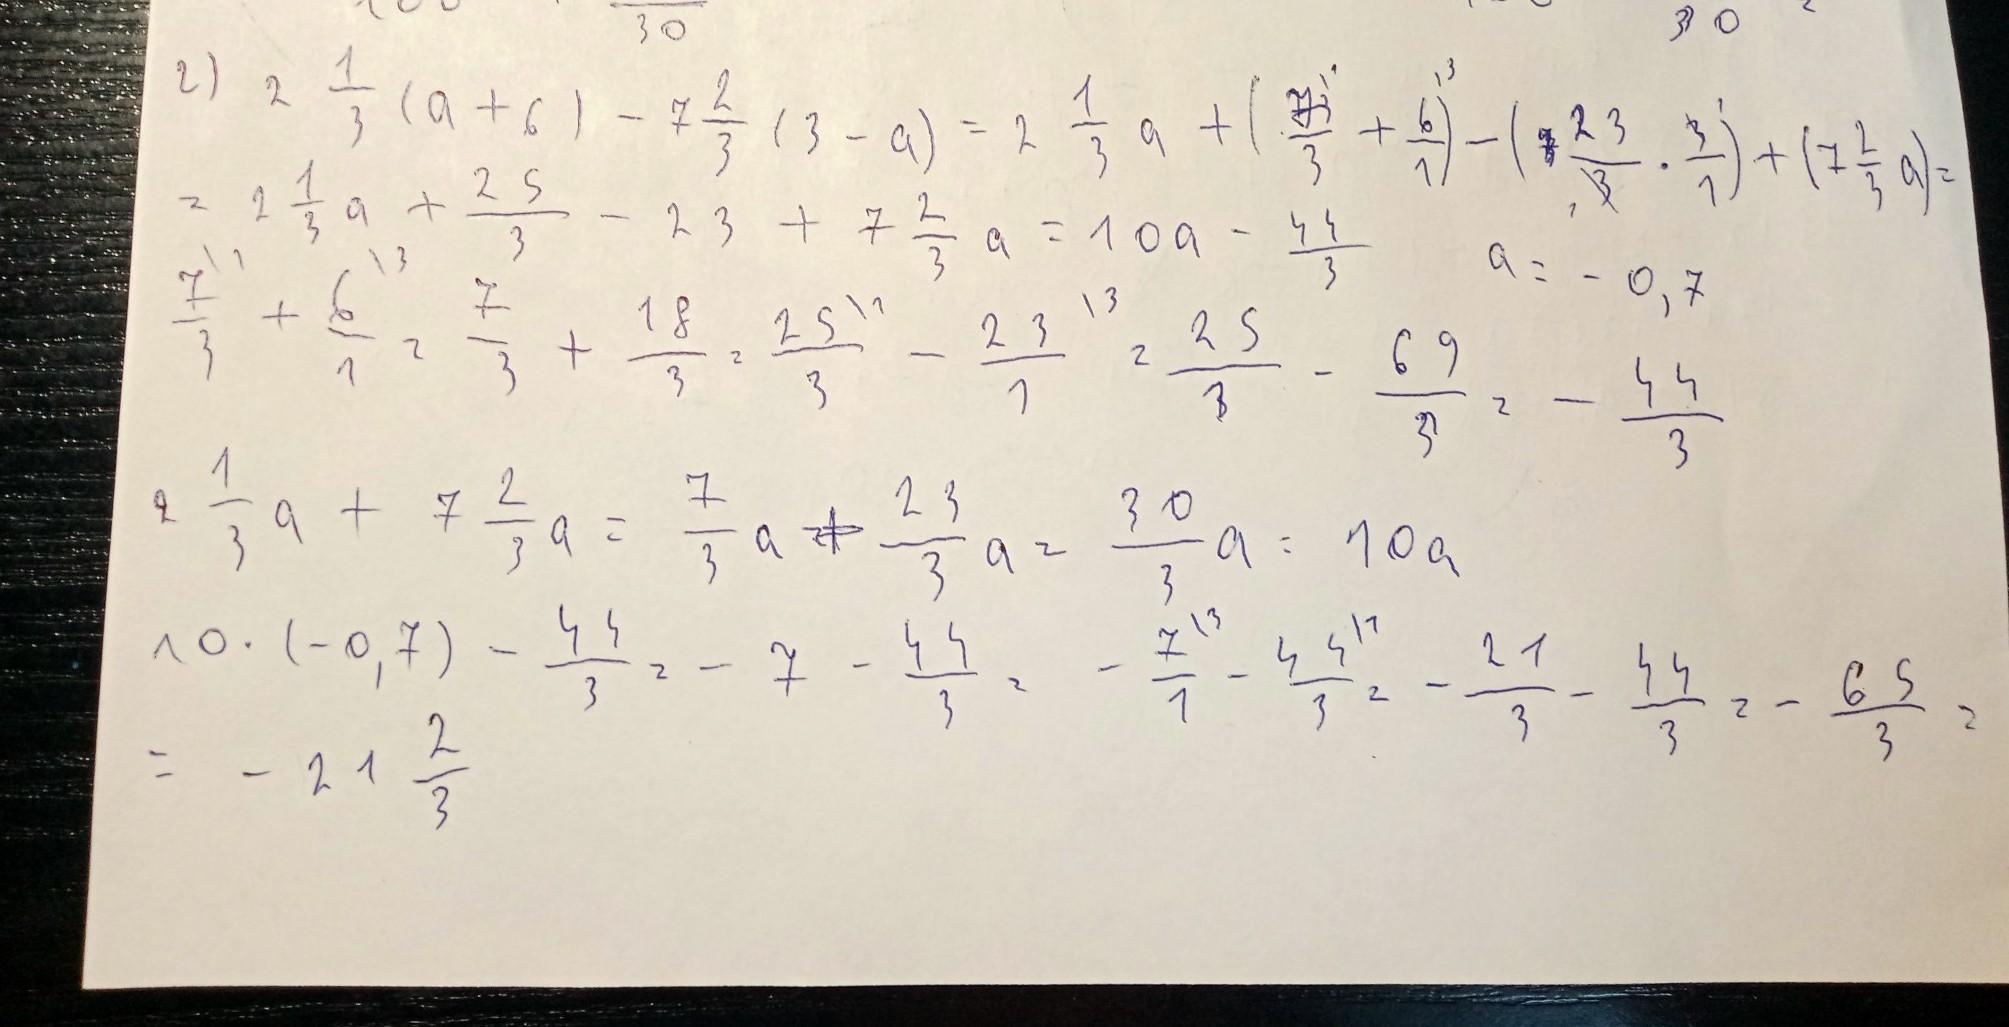 30 30
2) 2 1/3 (a + 6) - 7 2/3 (3 - a) = 2 1/3 a + (7/3 \1 + 6/1 \3) - (23/3 · 3/1) + (7 2/3 a) =
= 2 1/3 a + 25/3 - 23 + 7 2/3 a = 10a - 44/3 a = - 0,7
7/3 \1 + 6/1 \3 = 7/3 + 18/3 = 25/3 \1 - 23/1 \3 = 25/3 - 69/3 = - 44/3
2 1/3 a + 7 2/3 a = 7/3 a + 23/3 a = 30/3 a = 10a
10 · (-0,7) - 44/3 = - 7 - 44/3 = - 7/1 \3 - 44/3 \1 = - 21/3 - 44/3 = - 65/3 =
= - 21 2/3